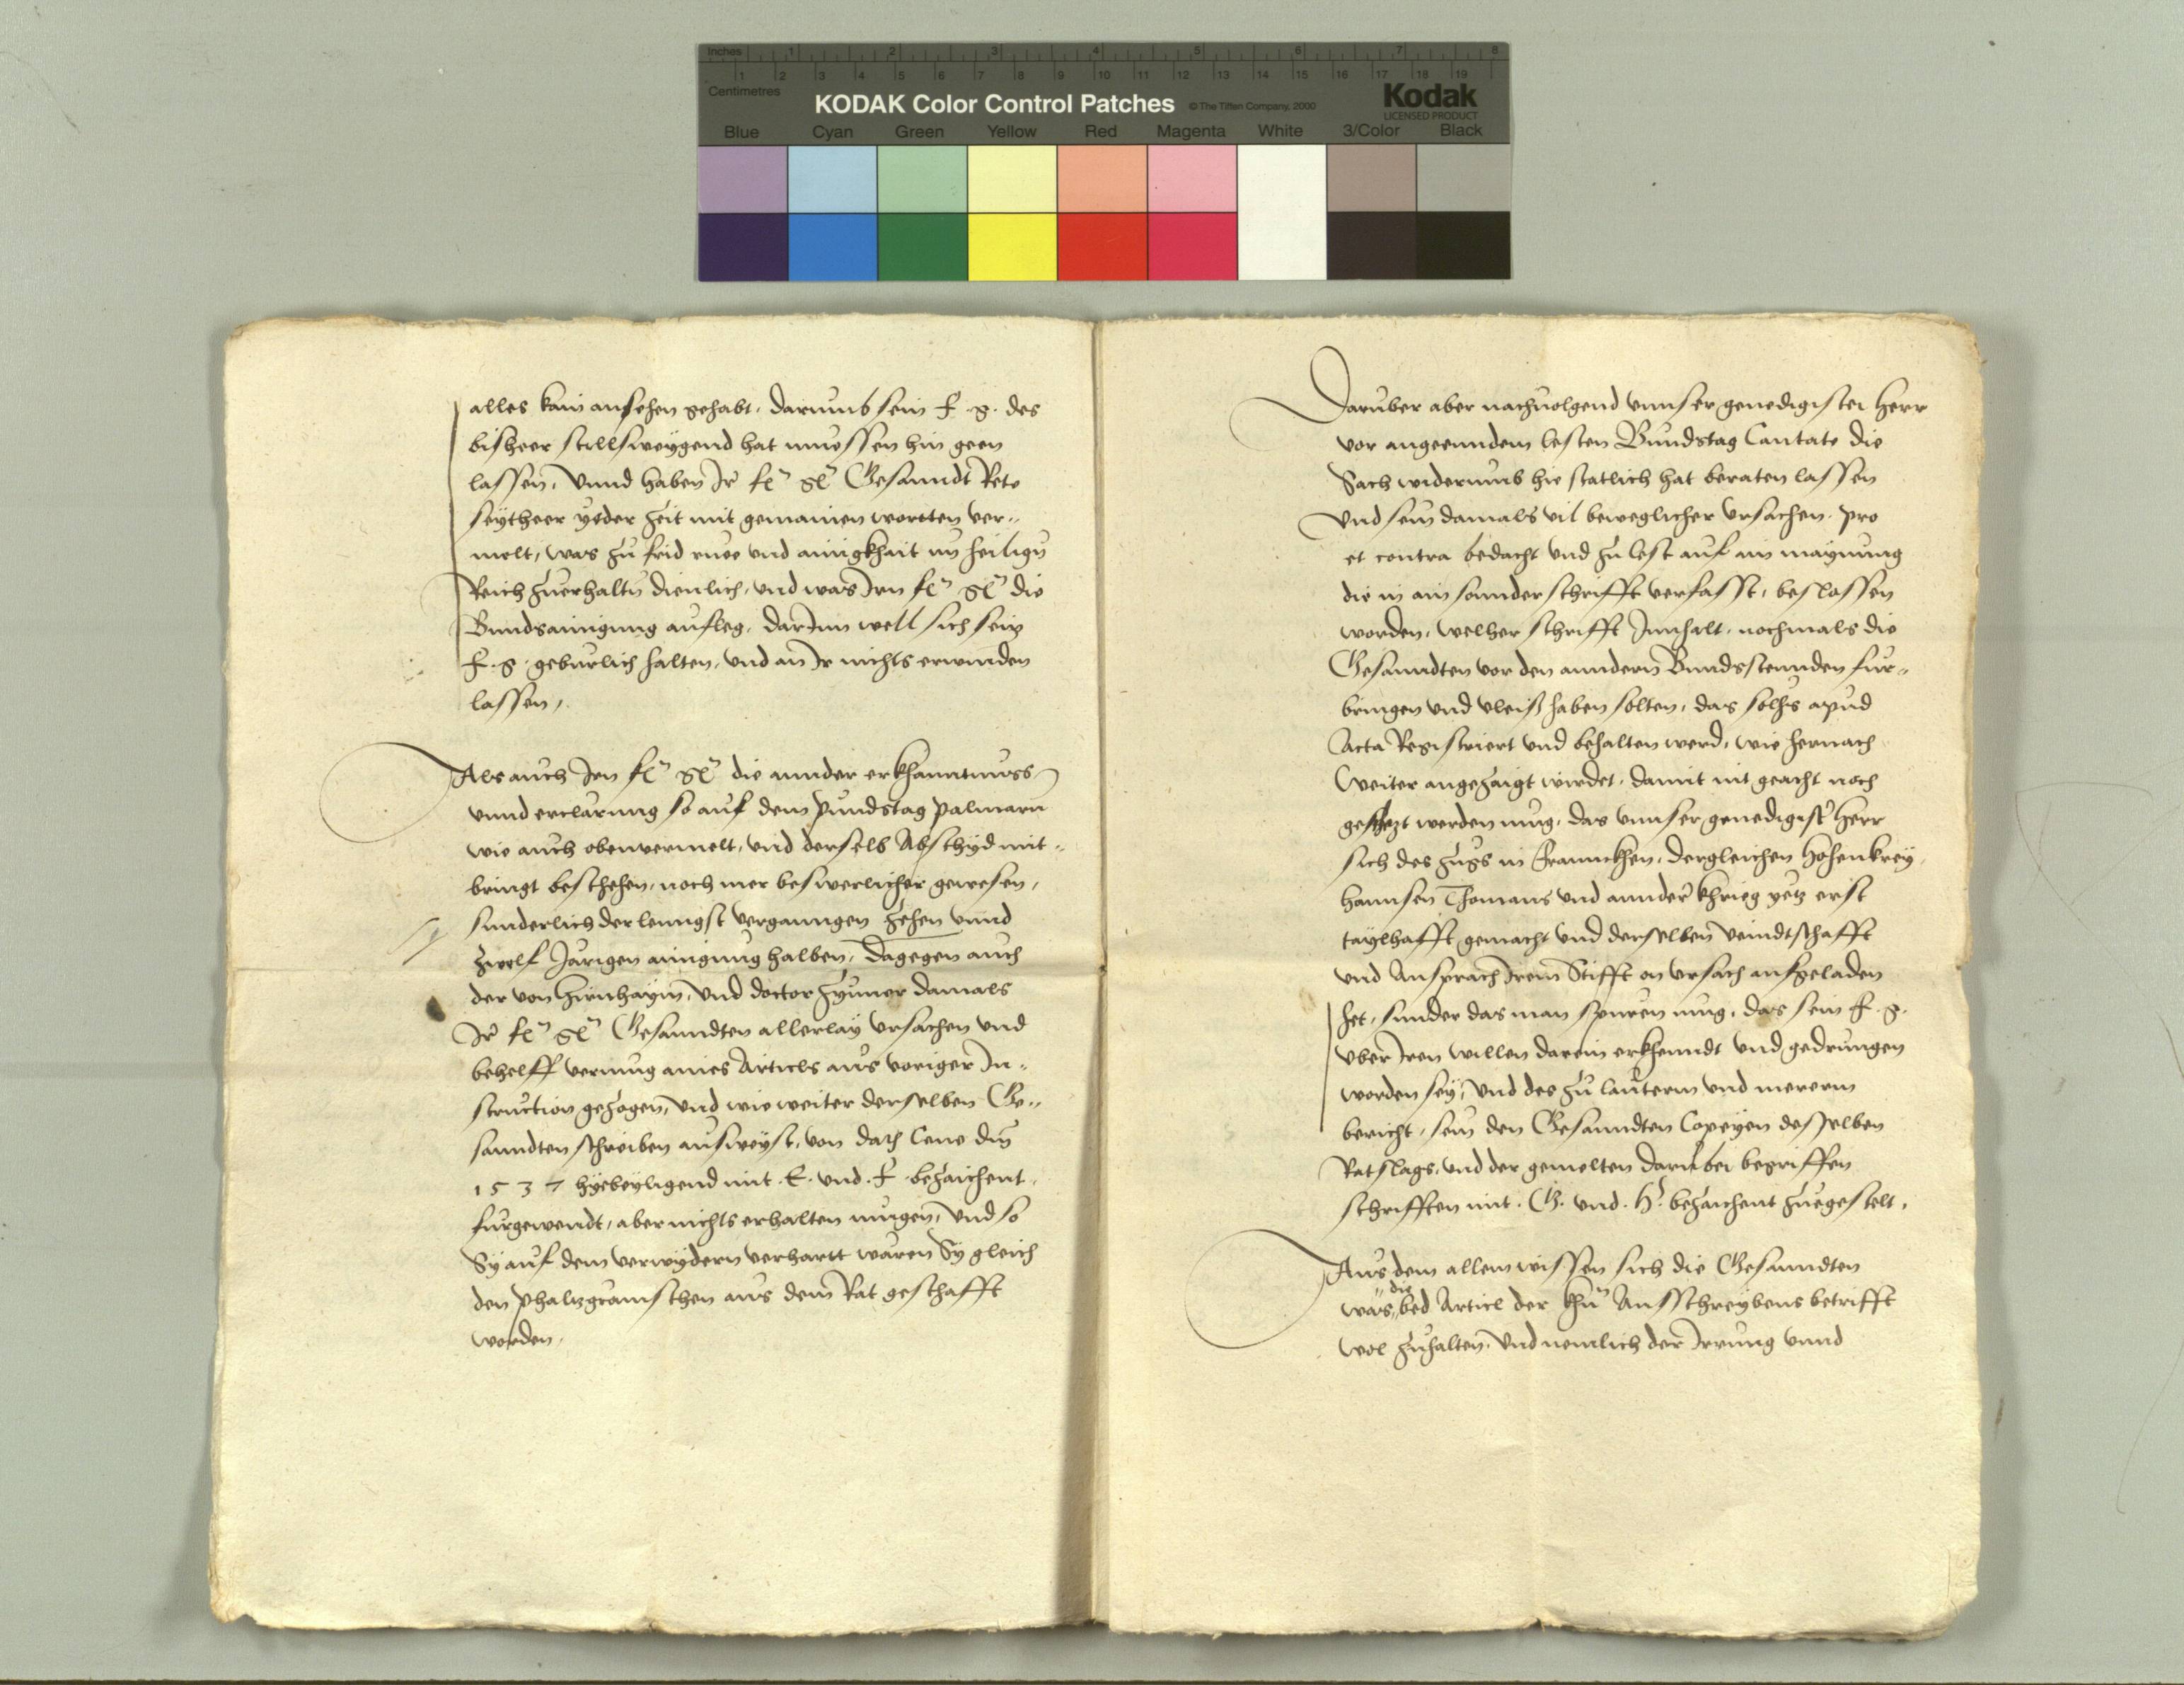 Inches 1 2 3 4 5 6 7 8
1 2 3 4 5 6 7 8 9 10 11 12 13 14 15 16 17 18 19
Centimetres
KODAK Color Control Patches © The Tiffen Company, 2000 Kodak
LICENSED PRODUCT
Blue Cyan Green Yellow Red Magenta White 3/Color Black
alles kain ansehen gehabt, darumb sein f. g. des
bisheer stillsweygend hat muessen hin geen
lassen, Vnnd haben Ir fl gl Gesanndt Rete
seytheer yeder zeit mit gemainen wortten ver„
melt, was zu frid ruee vnd ainigkhait im heilign
Reich zuerhaltn dienlich, vnd was Irn fl gl die
Bundsainigung aufleg, darInn well sich sein
f. g. geburlich halten, vnd an Ir nichts erwinden
lassen,
Als auch Irn fl gl die annder erkhanntnuss
vnnd erclarung so auf dem pundstag palmarn
wie auch obenvermelt, vnd derselb Abschyd mit„
bringt beschehen, noch mer beswerlicher gewesen,
sunderlich der lenngst verganngen zehen vnnd
zwelf Jarigen ainigung halben, Dagegen auch
der von Hirnhaym, vnd doctor Zynner damals
Ir fl gl Gesanndten allerlay vrsachen vnd
behelff vermug aines Articls aus voriger In„
struction gezogen, vnd wie weiter derselben Ge„
sanndten schreiben ausweyst, von dato Cene dni
1537 hyebeyligend mit .E. vnd .F. bezaichent,
furgewendt, aber nichts erhalten mugen, Vnd so
Sy auf dem verwydern verhartt waren Sy gleich
den phaltzgravischen aus dem Rat geschafft
worden,
Daruber aber nachuolgend vnnser genedigister herr
vor angeenndem lesten Bundstag Cantate die
Sach widerumb hie statlich hat beraten lassen
Vnd sein damals vil beweglicher vrsachen, pro
et contra bedacht vnd zu lest auf ain maynung
die in ain sonnder schrifft verfasst, beslossen
worden, welher schrifft Innhalt, nochmals die
Gesanndten vor den anndern Bundsstennden fur„
bringen vnd vleiß haben solten, das solhs apud
Acta Registriert vnd behalten werd, wie hernach
Weiter angezaigt wirdet, damit nit geacht noch
geschezt werden mug, das vnnser genedigister herr
sich des zugs in Franncken, dergleichen hohenkrey,
hannsen Thomans vnd annder khrieg yetz erst
taylhafft gemacht vnd derselben veindtschafft
vnd Ansprach Irem Stifft on vrsach aufgeladen
het, sunder das man spuren mug, das sein f. g.
vber Iren willen darein erkhenndt vnd gedrungen
worden sey, Vnd des zu lauterm vnd mererm
bericht, sein den Gesanndten Copeyen desselben
Ratslags, vnd der gemelten daruber begriffen
schrifften mit .G. vnd .H. bezaichent zuegestelt,
Aus dem allem wissen sich die Gesanndten
was die bed Articl der khu Ausschreybens betrifft
wol zuhalten, Vnd nemlich der Irrung vnnd